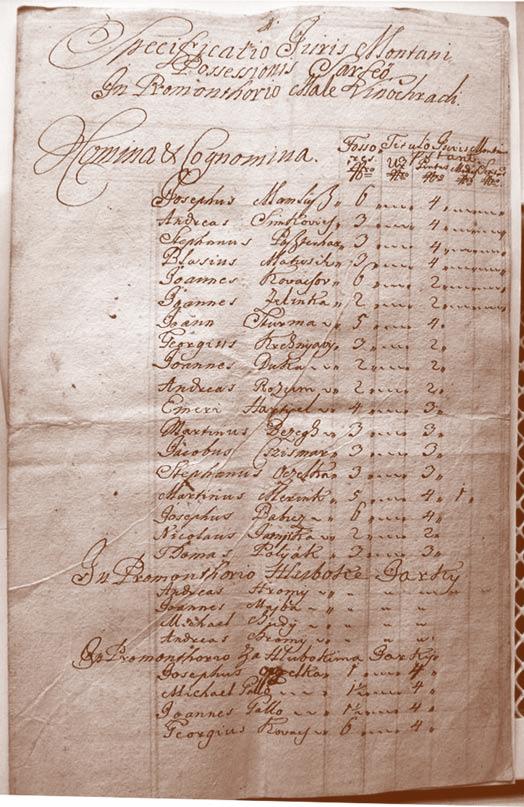 Specificatio Juris Montani
Possessionis Sarfeö
In Promonthorio Male Vinochrach.
Nomina & Cognomina. Fosso Titulo Juris Montani
Josephus 6 4
Andreas Simkovich 3 4
Stephanus 3 4
Blasius Matusik 3 4
Joannes Kovacsov 6 2
Joannes Zelinka 2 2
Joann Sturma 5 4
Georgius 3 2
Joannes Duka 2 2
Andreas Rozum 2 2
Emeri 4 3
Martinus 3 3
Jacobus Csizmar 3 3
Stephanus Oczelka 3 3
Martinus Merink 5 4 1
Josephus Babicz 6 4
Nicolaus 2 2
Thomas Polyák 3 3
In Promonthorio Hluboke Jarky
Andreas Hromy
Joannes Majba
Michael
Andreas Hromy
In Promonthorio Za Hlubokima Jarky
Josephus Oczelka 1 4
Michael Gallo 1½ 4
Joannes Gallo 1½ 4
Georgius Kovacs 6 4